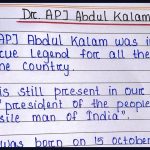 Dr. APJ Abdul Kalam
APJ Abdul Kalam was i
cue Legend for all the
he country.
is still present in our
"president of the people
sile man of India".
was born on 15 october